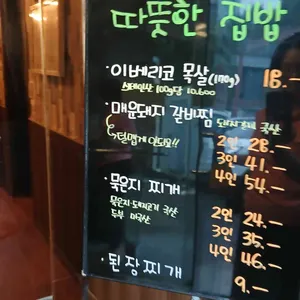 따뜻한 집밥
· 이베리코 목살(170g) 18.—
스페인산 100g당 10.600
· 매운돼지 갈비찜
돼지 국산
2인 28.—
덜맵게 안되요!! 3인 41.—
4인 54.—
· 묵은지 찌개
묵은지, 돼지고기 국산 2인 24.—
두부 미국산 3인 35.—
4인 46.—
· 된장찌개 9.—